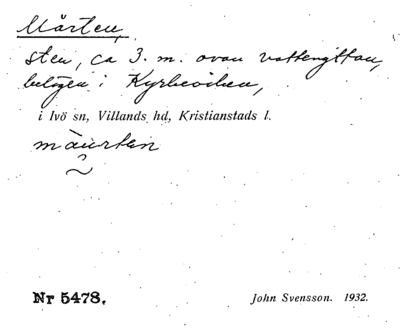 Mårten,
sten, ca 3. m. ovan vattenyttan,
belägen i Kyrkeviken,
i Ivö sn, Villands hd, Kristianstads l.
måurten
Nr 5478. John Svensson. 1932.